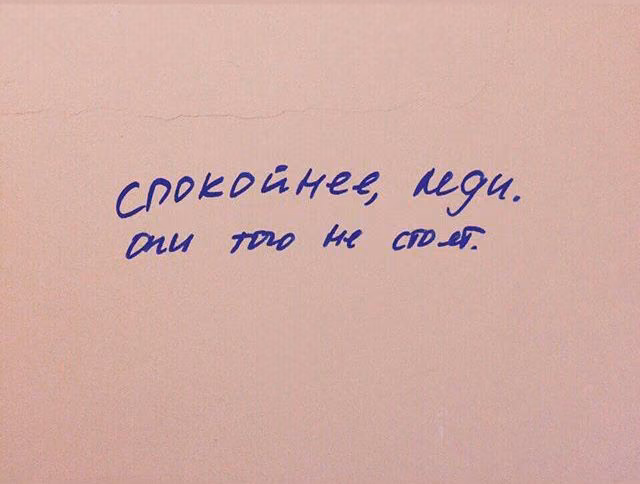 спокойнее, леди.
они того не стоят.